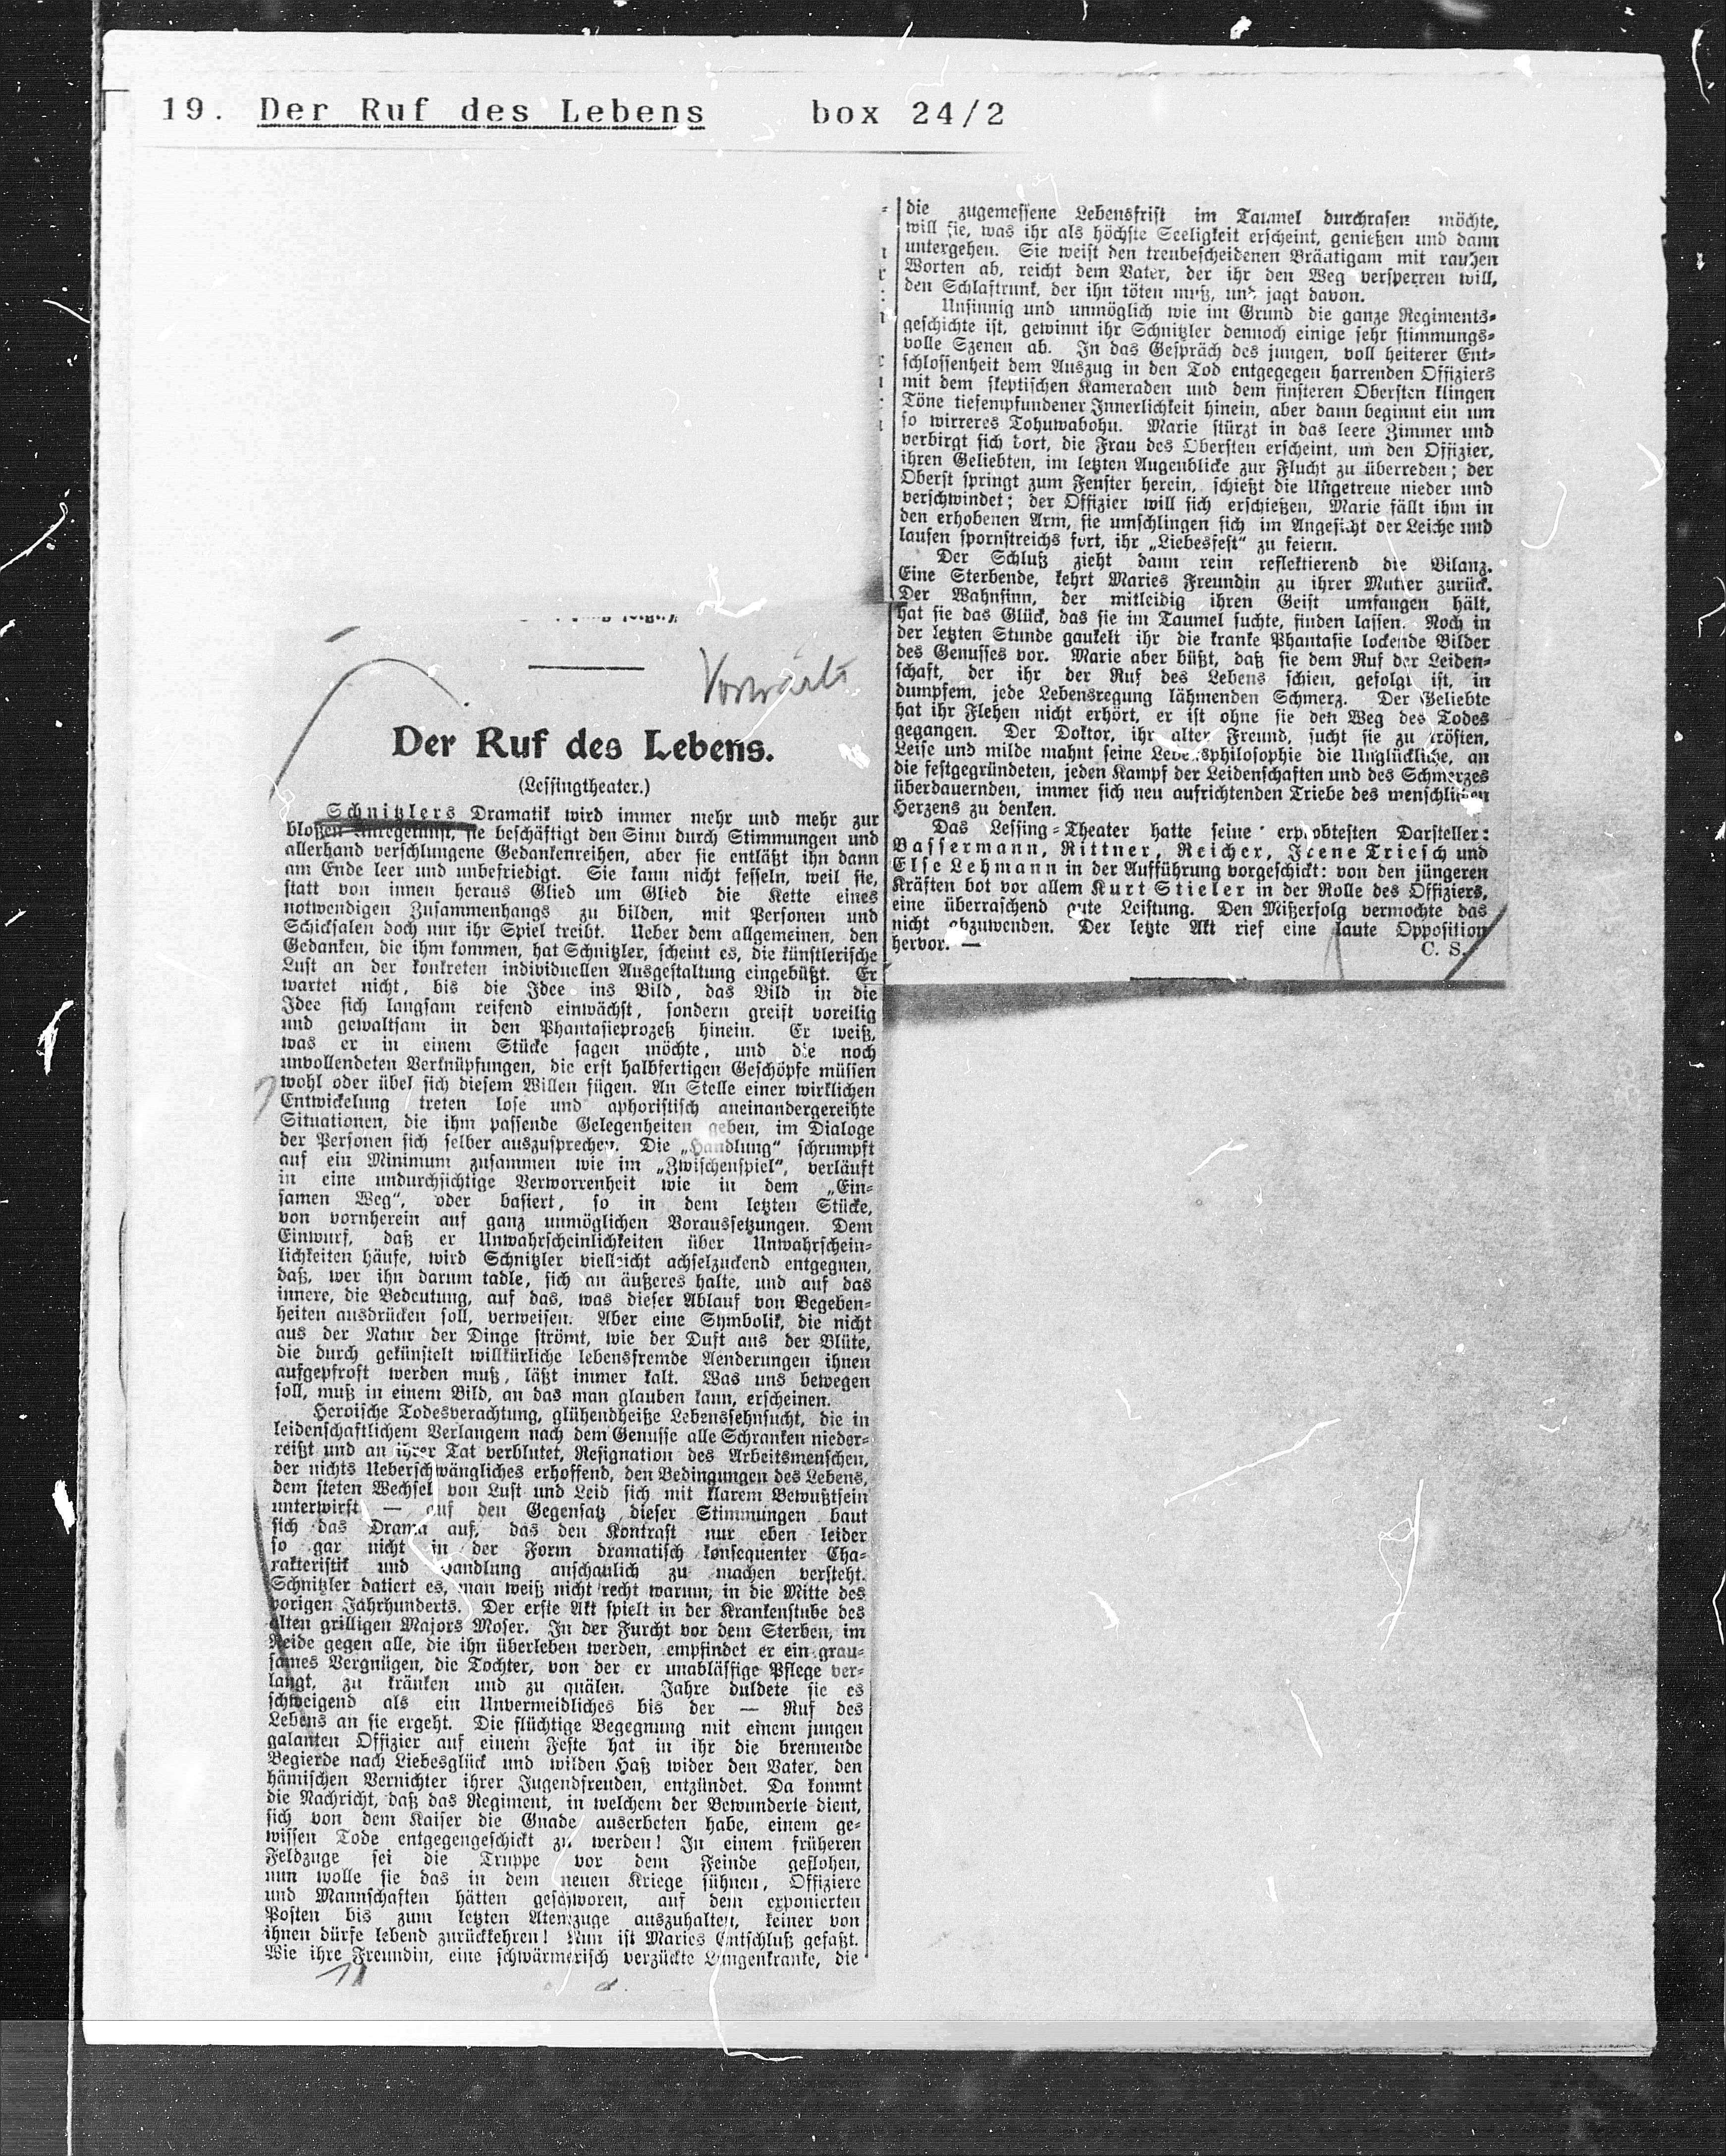 19. Der Ruf des Lebens box 24/2
Vorwärts
Der Ruf des Lebens.
(Lessingtheater.)
Schnitzlers Dramatik wird immer mehr und mehr zur
bloßen Anregekunst, sie beschäftigt den Sinn durch Stimmungen und
allerhand verschlungene Gedankenreihen, aber sie entläßt ihn dann
am Ende leer und unbefriedigt. Sie kann nicht fesseln, weil sie,
statt von innen heraus Glied um Glied die Kette eines
notwendigen Zusammenhangs zu bilden, mit Personen und
Schicksalen doch nur ihr Spiel treibt. Ueber dem allgemeinen, den
Gedanken, die ihm kommen, hat Schnitzler, scheint es, die künstlerische
Lust an der konkreten individuellen Ausgestaltung eingebüßt. Er
wartet nicht, bis die Idee ins Bild, das Bild in die
Idee sich langsam reifend einwächst, sondern greift voreilig
und gewaltsam in den Phantasieprozeß hinein. Er weiß,
was er in einem Stücke sagen möchte, und die noch
unvollendeten Verknüpfungen, die erst halbfertigen Geschöpfe müssen
wohl oder übel sich diesem Willen fügen. An Stelle einer wirklichen
Entwickelung treten lose und aphoristisch aneinandergereihte
Situationen, die ihm passende Gelegenheiten geben, im Dialoge
der Personen sich selber auszusprechen. Die „Handlung“ schrumpft
auf ein Minimum zusammen wie im „Zwischenspiel“, verläuft
in eine undurchsichtige Verworrenheit wie in dem „Ein-
samen Weg“, oder basiert, so in dem letzten Stücke,
von vornherein auf ganz unmöglichen Voraussetzungen. Dem
Einwurf, daß er Unwahrscheinlichkeiten über Unwahrschein-
lichkeiten häufe, wird Schnitzler vielleicht achselzuckend entgegnen,
daß, wer ihn darum tadle, sich an äußeres halte, und auf das
innere, die Bedeutung, auf das, was dieser Ablauf von Begeben-
heiten ausdrücken soll, verweisen. Aber eine Symbolik, die nicht
aus der Natur der Dinge strömt, wie der Duft aus der Blüte,
die durch gekünstelt willkürliche lebensfremde Aenderungen ihnen
aufgepfroft werden muß, läßt immer kalt. Was uns bewegen
soll, muß in einem Bild, an das man glauben kann, erscheinen.
Heroische Todesverachtung, glühendheiße Lebenssehnsucht, die in
leidenschaftlichem Verlangem nach dem Genusse alle Schranken nieder-
reißt und an ihrer Tat verblutet, Resignation des Arbeitsmenschen,
der nichts Ueberschwängliches erhoffend, den Bedingungen des Lebens,
dem steten Wechsel von Lust und Leid sich mit klarem Bewußtsein
unterwirft — auf den Gegensatz dieser Stimmungen baut
sich das Drama auf, das den Kontrast nur eben leider
so gar nicht in der Form dramatisch konsequenter Cha-
rakteristik und Handlung anschaulich zu machen versteht.
Schnitzler datiert es, man weiß nicht recht warum, in die Mitte des
vorigen Jahrhunderts. Der erste Akt spielt in der Krankenstube des
alten grilligen Majors Moser. In der Furcht vor dem Sterben, im
Neide gegen alle, die ihn überleben werden, empfindet er ein grau-
sames Vergnügen, die Tochter, von der er unablässige Pflege ver-
langt, zu kränken und zu quälen. Jahre duldete sie es
schweigend als ein Unvermeidliches bis der — Ruf des
Lebens an sie ergeht. Die flüchtige Begegnung mit einem jungen
galanten Offizier auf einem Feste hat in ihr die brennende
Begierde nach Liebesglück und wilden Haß wider den Vater, den
hämischen Vernichter ihrer Jugendfreuden, entzündet. Da kommt
die Nachricht, daß das Regiment, in welchem der Bewunderte dient,
sich von dem Kaiser die Gnade auserbeten habe, einem ge-
wissen Tode entgegengeschickt zu werden! In einem früheren
Feldzuge sei die Truppe vor dem Feinde geflohen,
nun wolle sie das in dem neuen Kriege sühnen, Offiziere
und Mannschaften hätten geschworen, auf dem exponierten
Posten bis zum letzten Atemzuge auszuhalten, keiner von
ihnen dürfe lebend zurückkehren! Nun ist Maries Entschluß gefaßt.
Wie ihre Freundin, eine schwärmerisch verzückte Lungenkranke, die
die zugemessene Lebensfrist im Taumel durchrasen möchte,
will sie, was ihr als höchste Seeligkeit erscheint, genießen und dann
untergehen. Sie weist den treubescheidenen Bräutigam mit rauhen
Worten ab, reicht dem Vater, der ihr den Weg versperren will,
den Schlaftrunk, der ihn töten muß, und jagt davon.
Unsinnig und unmöglich wie im Grund die ganze Regiments-
geschichte ist, gewinnt ihr Schnitzler dennoch einige sehr stimmungs-
volle Szenen ab. In das Gespräch des jungen, voll heiterer Ent-
schlossenheit dem Auszug in den Tod entgegegen harrenden Offiziers
mit dem skeptischen Kameraden und dem finsteren Obersten klingen
Töne tiefempfundener Innerlichkeit hinein, aber dann beginnt ein um
so wirreres Tohuwabohu. Marie stürzt in das leere Zimmer und
verbirgt sich dort, die Frau des Obersten erscheint, um den Offizier,
ihren Geliebten, im letzten Augenblicke zur Flucht zu überreden; der
Oberst springt zum Fenster herein, schießt die Ungetreue nieder und
verschwindet; der Offizier will sich erschießen, Marie fällt ihm in
den erhobenen Arm, sie umschlingen sich im Angesicht der Leiche und
laufen spornstreichs fort, ihr „Liebesfest“ zu feiern.
Der Schluß zieht dann rein reflektierend die Bilanz.
Eine Sterbende, kehrt Maries Freundin zu ihrer Mutter zurück.
Der Wahnsinn, der mitleidig ihren Geist umfangen hält,
hat sie das Glück, das sie im Taumel suchte, finden lassen. Noch in
der letzten Stunde gaukelt ihr die kranke Phantasie lockende Bilder
des Genusses vor. Marie aber büßt, daß sie dem Ruf der Leiden-
schaft, der ihr der Ruf des Lebens schien, gefolgt ist, in
dumpfem, jede Lebensregung lähmenden Schmerz. Der Geliebte
hat ihr Flehen nicht erhört, er ist ohne sie den Weg des Todes
gegangen. Der Doktor, ihr alter Freund, sucht sie zu trösten,
Leise und milde mahnt seine Lebensphilosophie die Unglückliche, an
die festgegründeten, jeden Kampf der Leidenschaften und des Schmerzes
überdauernden, immer sich neu aufrichtenden Triebe des menschlichen
Herzens zu denken.
Das Lessing-Theater hatte seine erprobtesten Darsteller:
Bassermann, Rittner, Reicher, Irene Triesch und
Else Lehmann in der Aufführung vorgeschickt: von den jüngeren
Kräften bot vor allem Kurt Stieler in der Rolle des Offiziers,
eine überraschend gute Leistung. Den Mißerfolg vermochte das
nicht abzuwenden. Der letzte Akt rief eine laute Opposition
hervor. —
C. S.